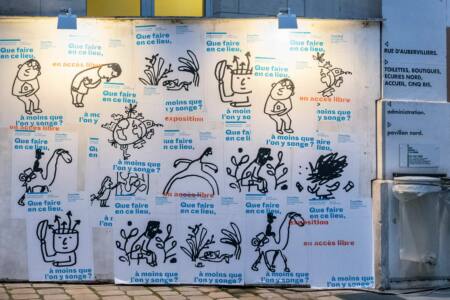 Que faire
en ce lieu,
Que faire
en ce lieu,
Que faire
en ce lieu,
Que faire
en ce lieu,
en accès libre
Que faire
en ce lieu,
à moins que
l'on y songe ?
à moins que
l'on y songe ?
en accès libre
en accès libre
exposition
Que faire
en ce lieu,
Que faire
en ce lieu,
Que faire
en ce lieu,
à moins que
l'on y songe ?
à moins que
l'on y songe ?
en accès libre
Que faire
en ce lieu,
Que faire
en ce lieu,
Que faire
en ce lieu,
Que faire
en ce lieu,
exposition
en accès libre
à moins que
l'on y songe ?
à moins que
l'on y songe ?
à moins que
l'on y songe ?
à moins que
l'on y songe ?
RUE D'AUBERVILLIERS.
TOILETTES, BOUTIQUES,
ECURIES NORD,
ACCUEIL, CINQ BIS.
administration.
pavillon nord.